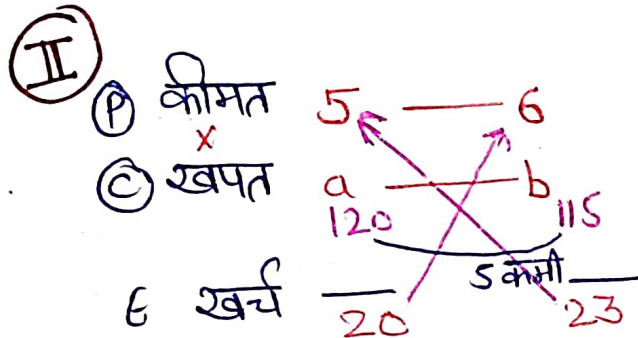 II
P कीमत 5 6
x
C खपत a b
120 115
5 कमी
E खर्च 20 23